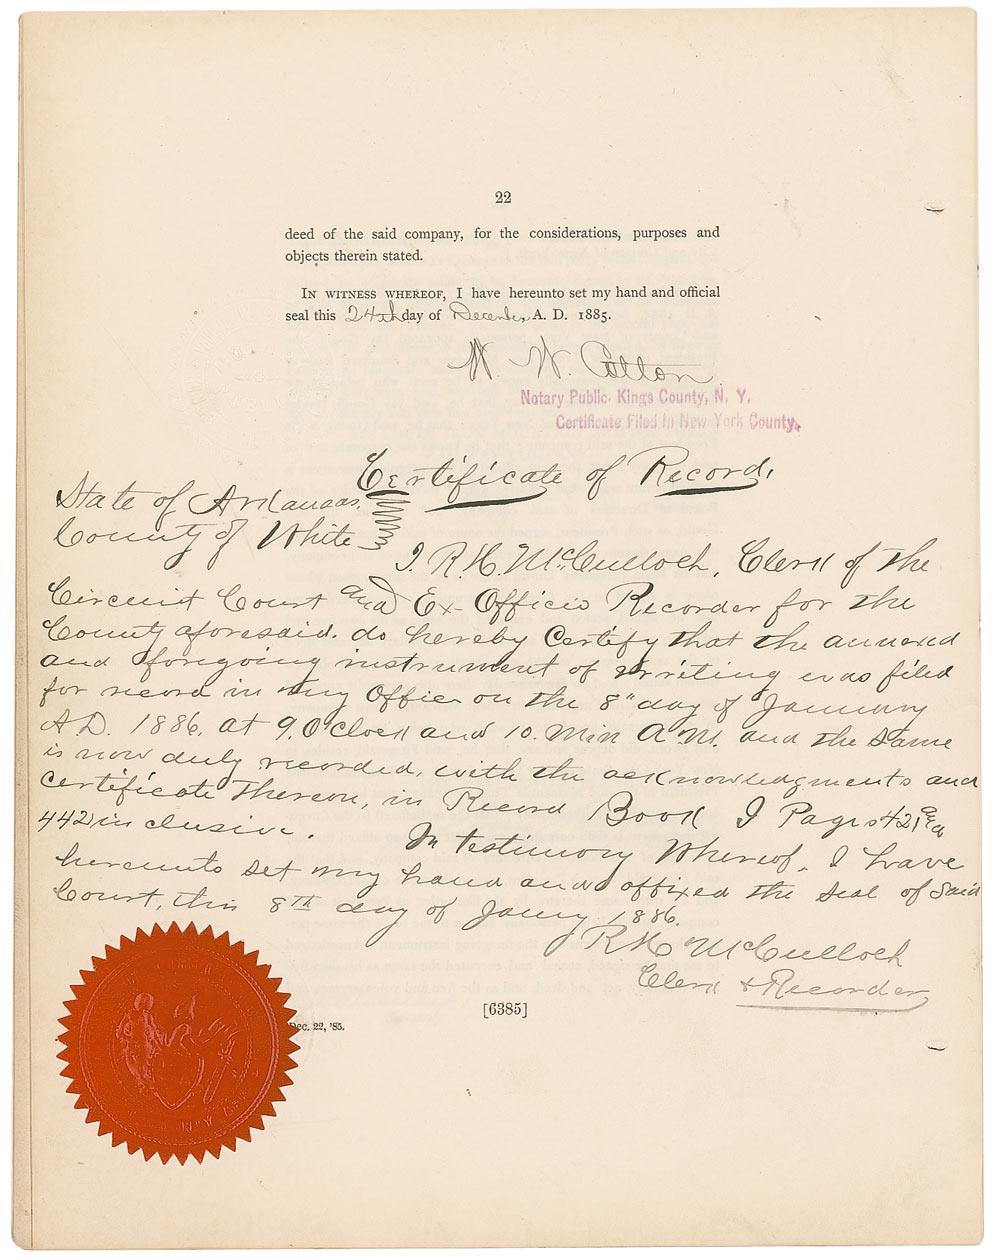 22
deed of the said company, for the considerations, purposes and
objects therein stated.
IN WITNESS WHEREOF, I have hereunto set my hand and official
seal this 24th day of December A. D. 1885.
W. W. Cotton
Notary Public, Kings County, N. Y.
Certificate Filed in New York County.
Certificate of Record.
State of Arkansas.
County of White
I R. H. McCulloch, Clerk of the
Circuit Court and Ex-Officio Recorder for the
County aforesaid. do hereby Certify that the annexed
and foregoing instrument of writing was filed
for record in my Office on the 8" day of January
A.D. 1886. at 9. O'clock and 10. Min A.M. and the same
is now duly recorded, with the acknowledgments and
certificate thereon, in Record Book I Pages 421 and
442 inclusive.
In testimony Whereof, I have
hereunto set my hand and affixed the seal of Said
Court, this 8TH day of Jany 1886.
R H McCulloch
Clerk & Recorder
[6385]
Dec. 22, '85.